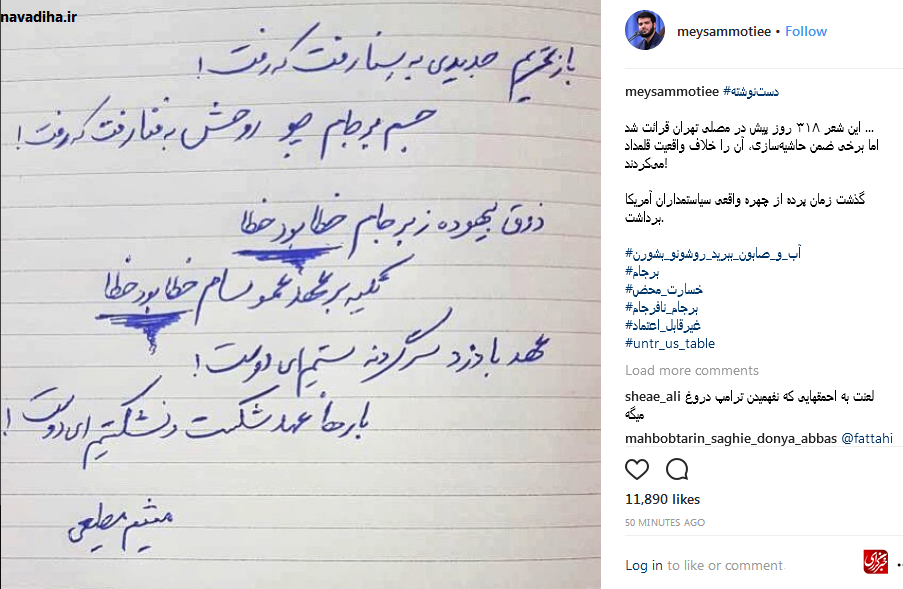 navadiha.ir
باز تحریم جدیدی به سنا رفت که رفت!
جسم برجام چو روحش به فنا رفت که رفت!
ذوق بیهوده ز برجام خطا بود خطا
تکیه بر عهد عمو سام خطا بود خطا
عهد با دزد سر گردنه بستیم ای دوست!
بارها عهد شکست و نشکستیم ای دوست!
میثم مطیعی
meysammotiee • Follow
meysammotiee #دست‌نوشته
... این شعر ۳۱۸ روز پیش در مصلی تهران قرائت شد
اما برخی ضمن حاشیه‌سازی، آن را خلاف واقعیت قلمداد
می‌کردند!
گذشت زمان پرده از چهره واقعی سیاستمداران آمریکا
برداشت.
#آب_و_صابون_ببرید_روشونو_بشورن
#برجام
#خسارت_محض
#برجام_نافرجام
#غیرقابل_اعتماد
#untr_us_table
Load more comments
sheae_ali لعنت به احمقهایی که نفهمیدن ترامپ دروغ
میگه
mahbobtarin_saghie_donya_abbas @fattahi
11,890 likes
50 MINUTES AGO
Log in to like or comment.